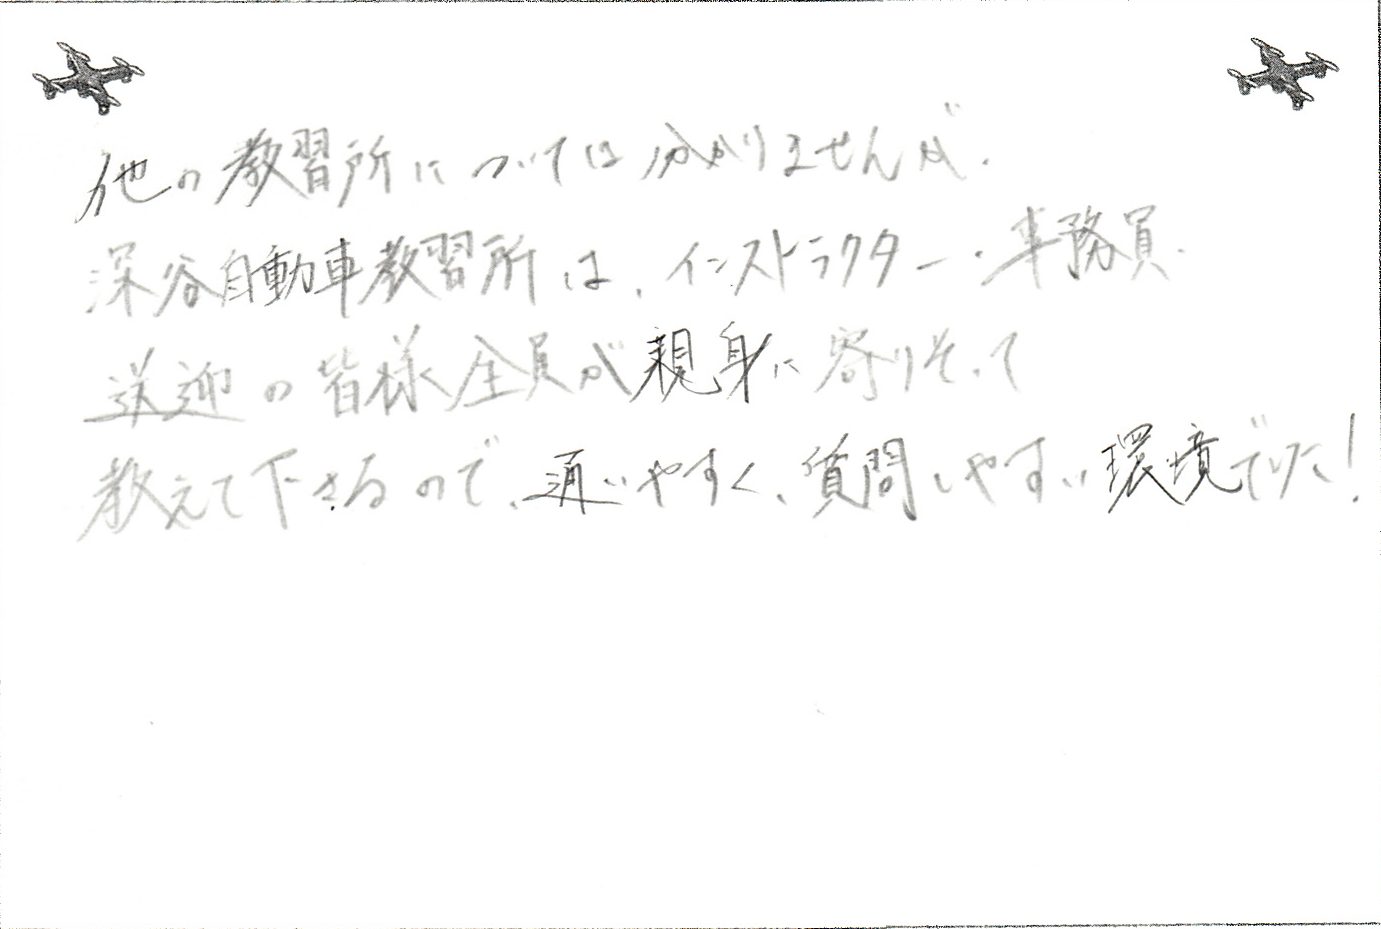 他の教習所については分かりませんが、
深谷自動車教習所は、インストラクター・事務員・
送迎の皆様全員が親身に寄りそって
教えて下さるので、通いやすく、質問しやすい環境でした!